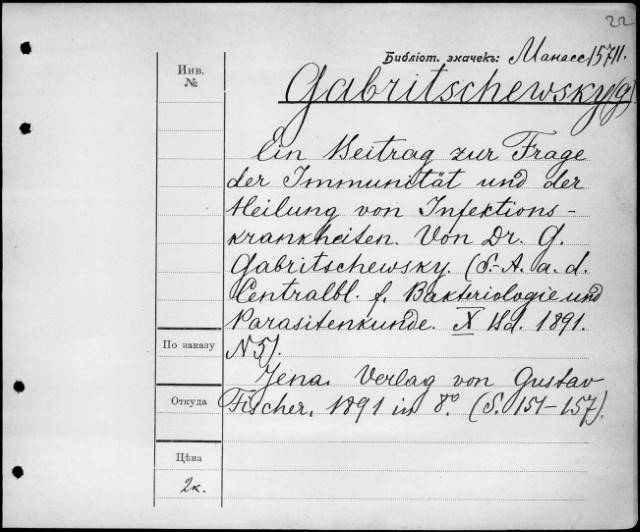 22
Библіот. значекъ: Манасс 1571.
Инв.
№
Gabritschewsky (G)
Ein Beitrag zur Frage
der Immunität und der
Heilung von Infektions-
krankheiten. Von Dr. G.
Gabritschewsky. (S.-A. a. d.
Centralbl. f. Bakteriologie und
Parasitenkunde. X Bd. 1891.
По заказу
N 5).
Jena. Verlag von Gustav
Откуда
Fischer, 1891 in 8º. (S. 151-157).
Цѣна
2к.